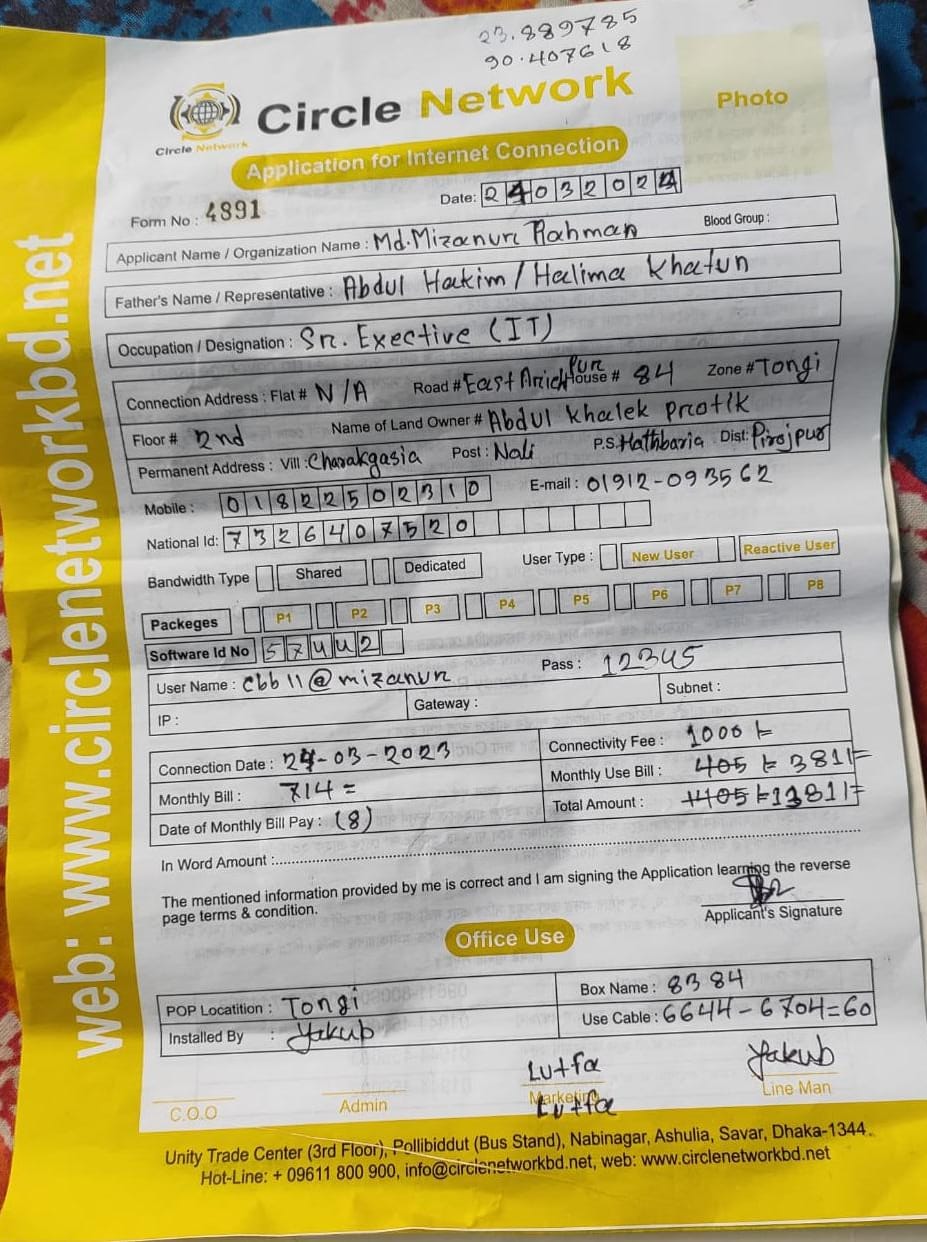 23.889785
90.407618
Circle Network
Circle Network
Photo
Application for Internet Connection
Form No : 4891
Date: 24032024
Applicant Name / Organization Name : Md. Mizanur Rahman Blood Group :
Father's Name / Representative : Abdul Hakim / Halima Khatun
Occupation / Designation : Sr. Exective (IT)
Connection Address : Flat # N/A Road # East Arichpur House # 84 Zone # Tongi
Floor # 2nd Name of Land Owner # Abdul Khalek Pratik
Permanent Address : Vill : Charakgasia Post : Nali P.S. Hathbaria Dist: Pirojpur
Mobile : 01822502310 E-mail : 01912-093562
National Id: 7326407520
Bandwidth Type Shared Dedicated User Type : New User Reactive User
Packeges P1 P2 P3 P4 P5 P6 P7 P8
Software Id No 57442
User Name : cbb11@mizanur Pass : 12345
IP : Gateway : Subnet :
Connection Date : 24-03-2023 Connectivity Fee : 1000
Monthly Bill : 714 = Monthly Use Bill : 405 381/=
Date of Monthly Bill Pay : (8) Total Amount : 1405 1381/=
In Word Amount :
The mentioned information provided by me is correct and I am signing the Application learning the reverse
page terms & condition.
Applicant's Signature
Office Use
POP Locatition : Tongi Box Name : 8384
Installed By : Yakub Use Cable : 6644 - 6704 = 60
Lutfa Yakub
C.O.O Admin Marketing Line Man
Lutfa
Unity Trade Center (3rd Floor), Pollibiddut (Bus Stand), Nabinagar, Ashulia, Savar, Dhaka-1344.
Hot-Line: + 09611 800 900, info@circlenetworkbd.net, web: www.circlenetworkbd.net
web: www.circlenetworkbd.net